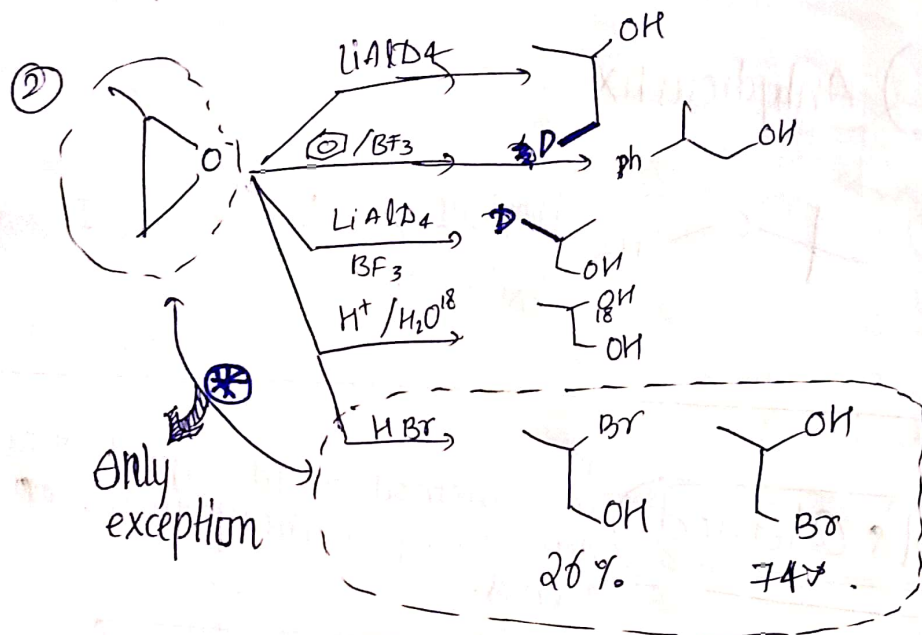 ②
O
LiAlD4
OH
D
/BF3
ph
OH
LiAlD4
BF3
D
OH
H+ /H2O18
OH
18
OH
HBr
Br
OH
26%
OH
Br
74%.
*
Only
exception